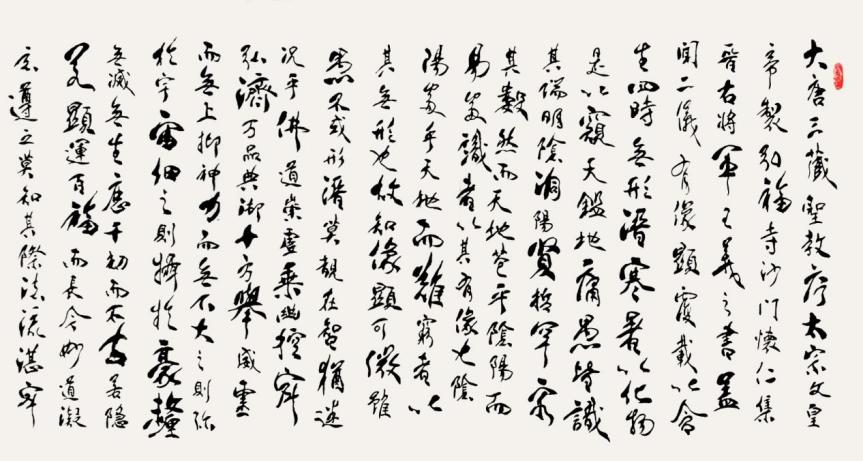 大唐三藏聖教序太宗文皇
帝製弘福寺沙門懷仁集
晉右將軍王羲之書蓋
聞二儀有像顯覆載以含
生四時無形潛寒暑以化物
是以窺天鑑地庸愚皆識
其端明陰洞陽賢哲罕窮
其數然而天地苞乎陰陽而
易識者以其有像也陰
陽處乎天地而難窮者以
其無形也故知像顯可徵雖
愚不惑形潛莫覩在智猶迷
況乎佛道崇虛乘幽控寂
弘濟万品典御十方舉威靈
而無上抑神力而無下大之則弥
於宇宙細之則攝於豪釐
無滅無生歷千劫而不古若隱
若顯運百福而長今妙道凝
玄遵之莫知其際法流湛寂